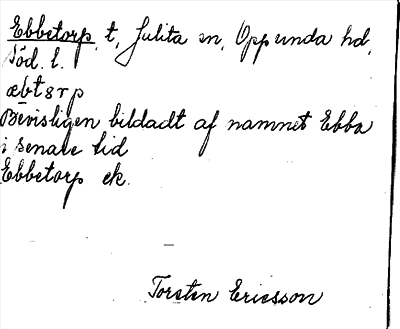 Ebbetorp, t, Julita sn, Oppunda hd,
Söd. l.
æbtsrp
Bevisligen bildadt af namnet Ebba
i senare tid
Ebbetorp ek.
Torsten Ericsson